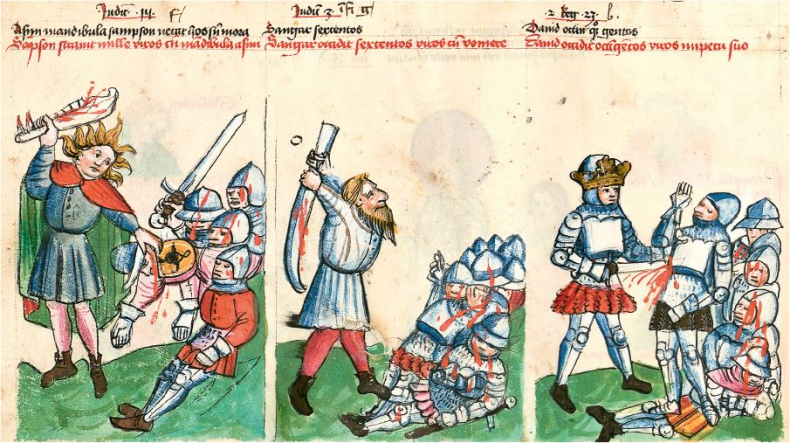 Judicū · 14 ·
Asini mandibula sampson necat hos sū mora
Sapson strauit mille viros cū madibula asini
Judicū 3
Sangar sexcentos
Sangar occidit sexcentos viros cū vomere
2 Reg 23
Dauid octin gentos
Dauid occidit octīgētos viros impetu suo